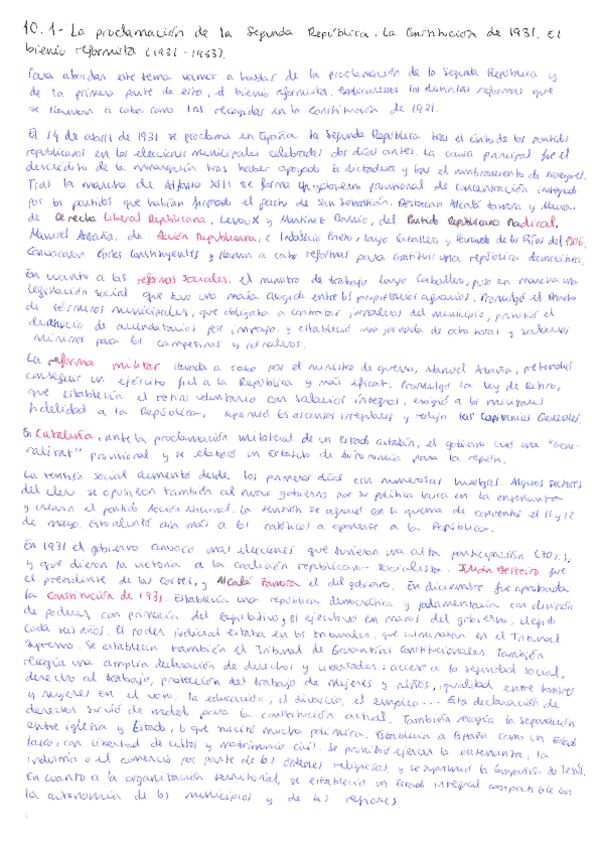 10.1- La proclamación de la Segunda República. La Constitución de 1931. El
bienio reformista (1931-1933).
Para abordar este tema vamos a hablar de la proclamación de la Segunda República y
de la primera parte de esta, el bienio reformista. Explicaremos las distintas reformas que
se llevaron a cabo como las recogidas en la Constitución de 1931.
El 14 de abril de 1931 se proclama en España la Segunda República tras el éxito de los partidos
republicanos en las elecciones municipales celebradas dos días antes. La causa principal fue el
descrédito de la monarquía tras haber apoyado la dictadura y tras el nombramiento de
Tras la marcha de Alfonso XIII se forma un gobierno provisional de concentración integrado
por los partidos que habían firmado el pacto de San Sebastián. Destacan Alcalá Zamora y Maura,
de Derecha Liberal Republicana, Lerroux y Martínez Barrio, del Partido Republicano Radical,
Manuel Azaña, de Acción Republicana, e Indalecio Prieto, Largo Caballero y Fernando de los Ríos del PSOE.
Convocaron Cortes Constituyentes y llevaron a cabo reformas para constituir una república democrática.
En cuanto a las reformas sociales, el ministro de trabajo Largo Caballero, puso en marcha una
legislación social que tuvo una mala acogida entre los propietarios agrarios. Promulgó el Decreto
de términos municipales, que obligaba a contratar jornaleros del municipio, prohibió el
desahucio de arrendatarios por impago y estableció una jornada de ocho horas y salarios
mínimos para los campesinos y jornaleros.
La reforma militar llevada a cabo por el ministro de guerra, Manuel Azaña, pretendió
conseguir un ejército fiel a la República y más eficaz. Promulgó la Ley de Retiro,
que establecía el retiro voluntario con salarios íntegros, exigió a los militares
fidelidad a la República, suprimió los ascensos irregulares y redujo las Capitanías Generales.
En Cataluña, ante la proclamación unilateral de un Estado catalán, el gobierno creó una "Gene-
ralitat" provisional y se elaboró un Estatuto de Autonomía para la región.
La tensión social aumentó desde los primeros días con numerosas huelgas. Algunos sectores
del clero se opusieron también al nuevo gobierno por su política laica en la enseñanza
y crearon el partido Acción Nacional. La tensión se agravó con la quema de conventos el 11 y 12
de mayo. Esto alentó aún más a los católicos a oponerse a la República.
En 1931 el gobierno convocó unas elecciones que tuvieron una alta participación (70%),
y que dieron la victoria a la coalición republicano-socialista. Julián Besteiro fue
el presidente de las Cortes, y Alcalá Zamora el del gobierno. En diciembre fue aprobada
la Constitución de 1931. Establecía una república democrática y parlamentaria con división
de poderes, con primacía del legislativo, el ejecutivo en manos del gobierno, elegido
cada seis años. El poder judicial estaba en los tribunales, que culminaban en el Tribunal
Supremo. Se establecía también el Tribunal de Garantías Constitucionales. También
recogía una amplia declaración de derechos y libertades: acceso a la seguridad social,
derecho al trabajo, protección del trabajo de mujeres y niños, igualdad entre hombres
y mujeres en el voto, la educación, el divorcio, el empleo... Esta declaración de
derechos sirvió de modelo para la constitución actual. También recogía la separación
entre iglesia y Estado, lo que suscitó mucha polémica. Establecía a España como un Estado
laico, con libertad de cultos y matrimonio civil. Se prohibió ejercer la enseñanza, la
industria o el comercio por parte de las órdenes religiosas, y se suprimió la Compañía de Jesús.
En cuanto a la organización territorial, se estableció un Estado integral compatible con
la autonomía de los municipios y de las regiones